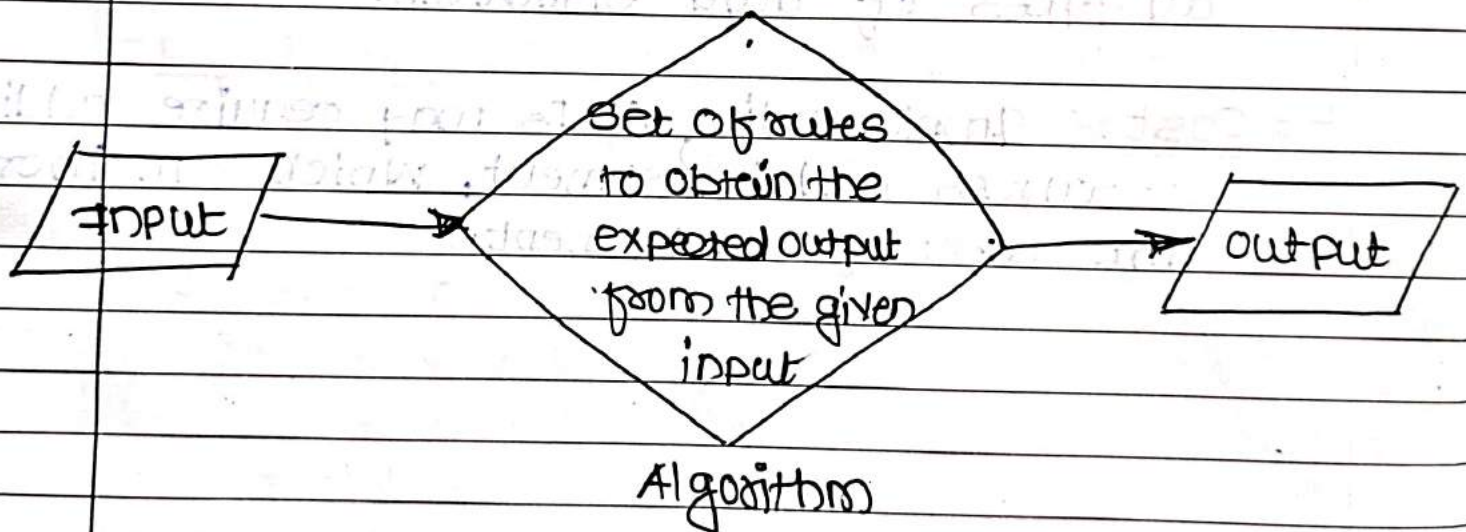 Input
set of rules
to obtain the
expected output
from the given
input
output
Algorithm